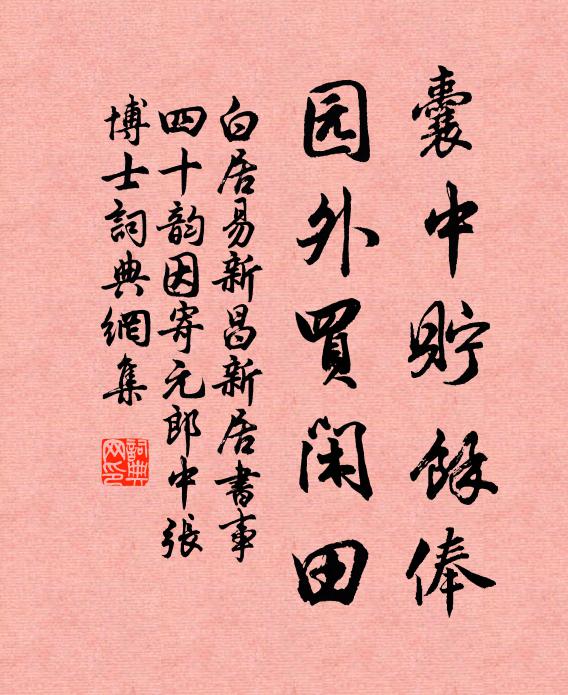 囊中貯餘俸
园外買閑田
白居易新昌新居書事
四十韵因寄元郎中張
博士詞典網集
詞典网印